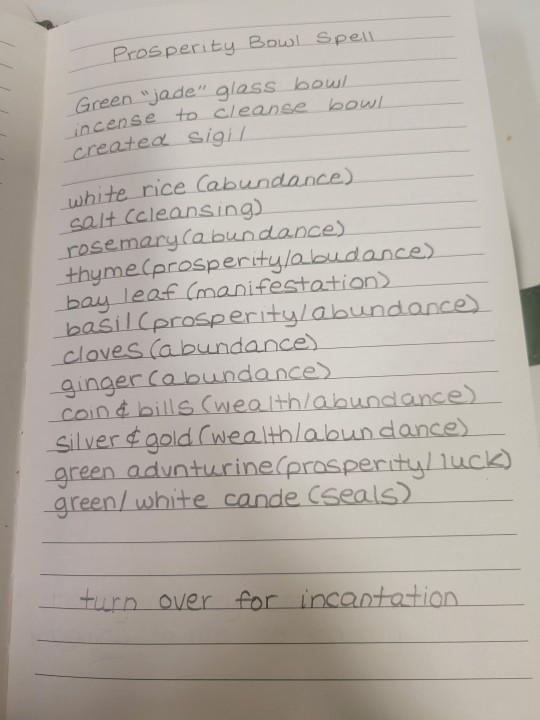 Prosperity Bowl Spell
Green "jade" glass bowl
incense to cleanse bowl
created sigil
white rice (abundance)
salt (cleansing)
rosemary (abundance)
thyme (prosperity/abudance)
bay leaf (manifestation)
basil (prosperity/abundance)
cloves (abundance)
ginger (abundance)
coin & bills (wealth/abundance)
silver & gold (wealth/abundance)
green advnturine (prosperity/luck)
green/white cande (seals)
turn over for incantation